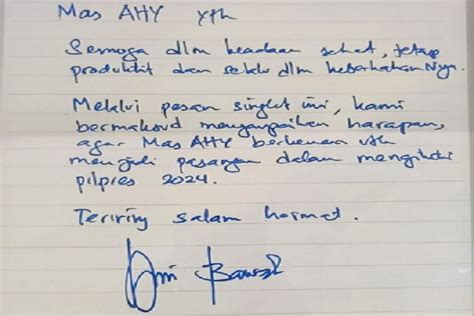 Mas AHY Yth
Semoga dlm keadaan sehat, tetap
produktif dan selalu dlm keberkahanNya.
Melalui pesan singkat ini, kami
bermaksud menyampaikan harapan,
agar Mas AHY berkenan utk
menjadi pasangan dalam mengikuti
pilpres 2024.
Teriring salam hormat.